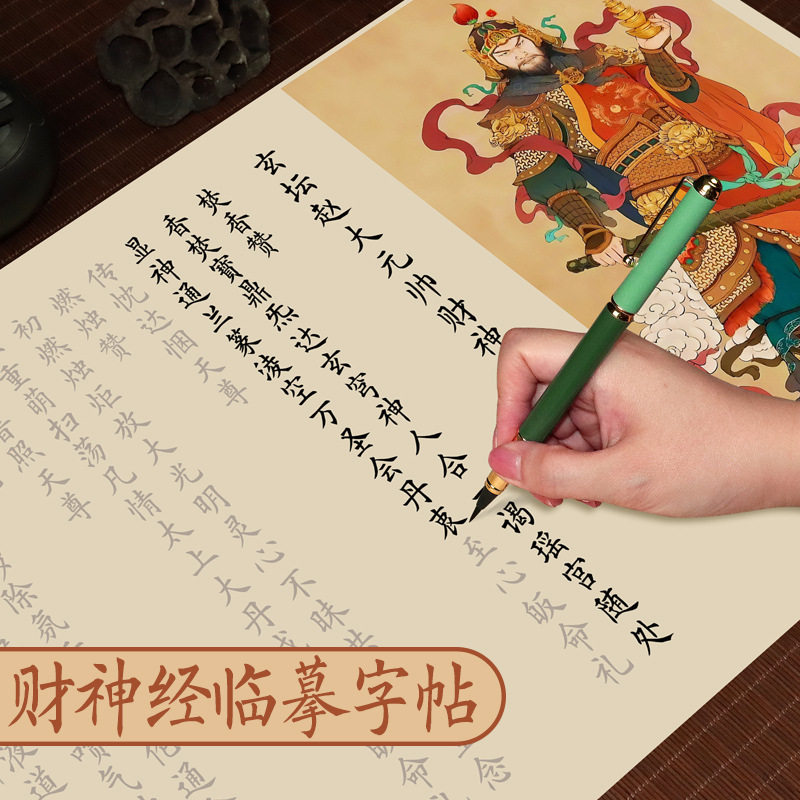 玄坛赵大元帅财神
焚香赞
香焚寶鼎炁达玄穹神人合谒瑶宫随处
显神通兰篆凌空万圣会丹衷至心皈命礼
传忱达悃天尊
燃烛赞
初燃烛炬放大光明灵心不昧
重萌扫荡凡情太上大丹
照天尊
除氛
命
念
通
气
道
财神经临摹字帖